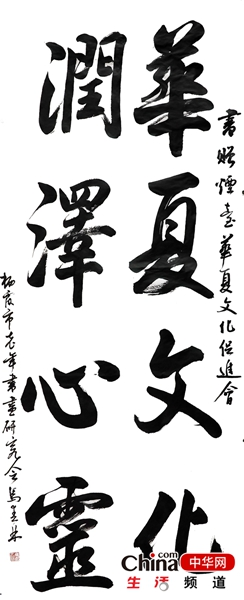 書贈煙臺華夏文化促進會
華夏文化
潤澤心靈
栖霞市老年書畫研究会馬
China.com 中华网
生活频道